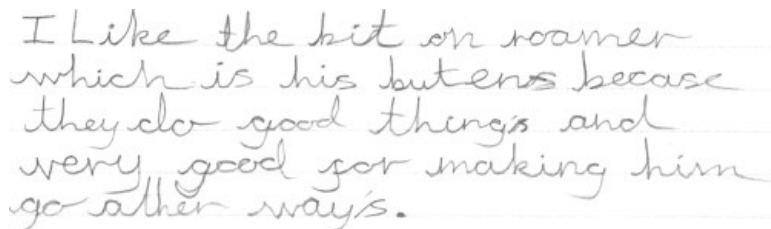 I Like the bit on roamer
which is his butens becase
they do good things and
very good for making him
go other way's.